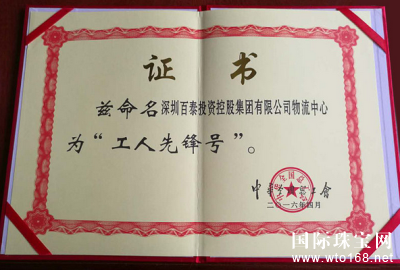 证书
兹命名深圳百泰投资控股集团有限公司物流中心
为“工人先锋号”。
二〇一六年四月
国际珠宝网
www.wto168.net